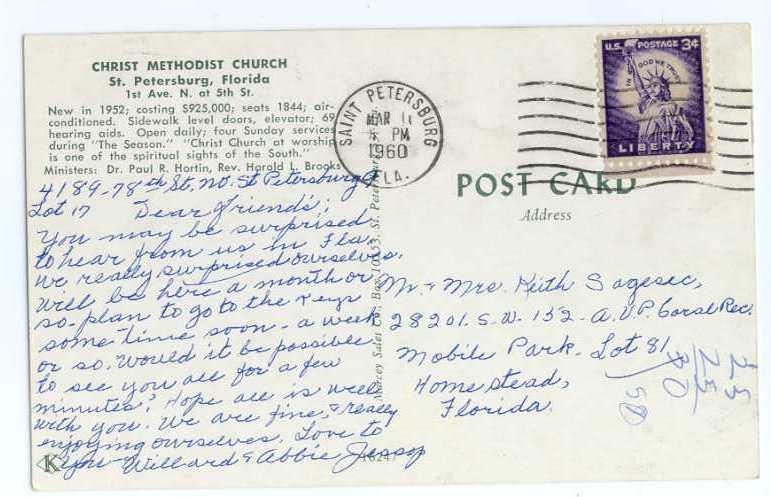 CHRIST METHODIST CHURCH
St. Petersburg, Florida
1st Ave. N. at 5th St.
New in 1952; costing $925,000; seats 1844; air-
conditioned. Sidewalk level doors, elevator; 69
hearing aids. Open daily; four Sunday services
during "The Season." "Christ Church at worship
is one of the spiritual sights of the South."
Ministers: Dr. Paul R. Hortin, Rev. Harold L. Brooks
4189-78th St. No. St Petersburg
Lot 17 Dear friends;
You may be surprised
to hear from us in Fla.
we really surprised ourselves.
will be here a month or
so. plan to go to the Keys
some time soon - a week
or so. Would it be possible
to see you all for a few
minutes? Hope all is well
with you. We are fine, & really
enjoying ourselves. Love to
you Willard & Abbie Jessop
K
SAINT PETERSBURG
MAR 11
PM
1960
FLA.
U.S. POSTAGE 3¢
IN GOD WE TRUST
LIBERTY
POST CARD
Address
Mr. & Mrs. Keith Sagesec,
28201. S.W. 152 - A.V.P. Coral Rec.
Mobile Park. Lot 81
Homestead,
Florida.